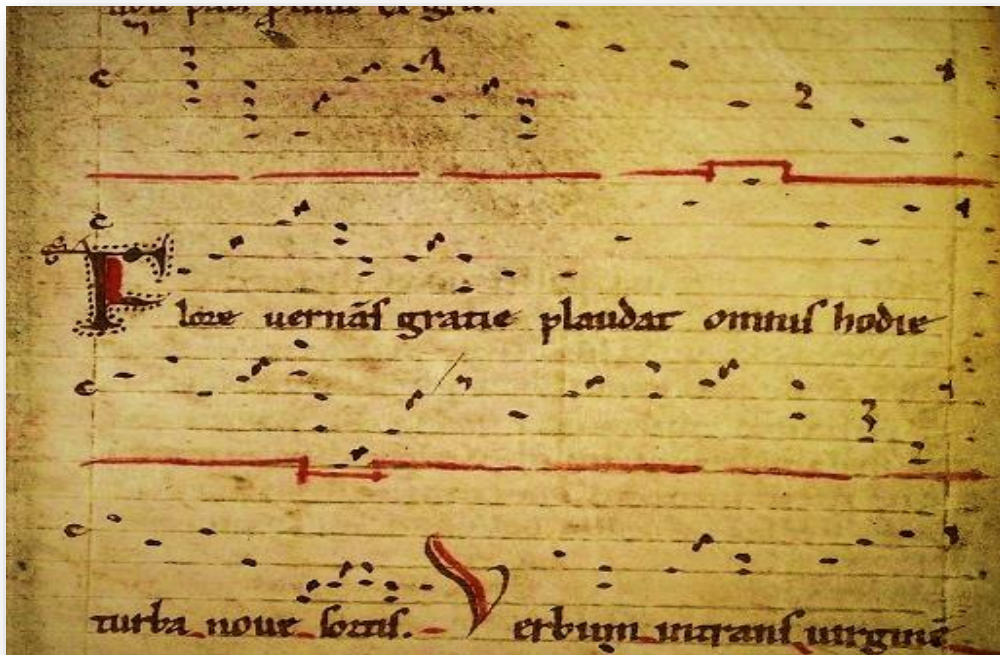 Flore vernās gratie plaudat omnis hodie
turba nove sortis. Verbum intrans uirginē